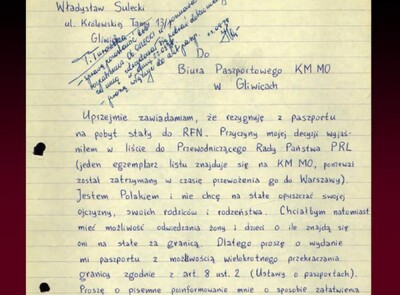 Władysław Sulecki
ul. Królewskiej Tamy 13/
Gliwice
Do
Biura Paszportowego KM MO
w Gliwicach
Uprzejmie zawiadamiam, że rezygnuję z paszportu
na pobyt stały do RFN. Przyczyny mojej decyzji wyjaś-
niłem w liście do Przewodniczącego Rady Państwa PRL
(jeden egzemplarz listu znajduje się na KM MO, ponieważ
został zatrzymany w czasie przewożenia go do Warszawy).
Jestem Polakiem i nie chcę na stałe opuszczać swojej
ojczyzny, swoich rodziców i rodzeństwa. Chciałbym natomiast
mieć możliwość odwiedzania żony i dzieci o ile znajdą się
oni na stałe za granicą. Dlatego proszę o wydanie
mi paszportu z możliwością wielokrotnego przekraczania
granicy zgodnie z art. 8 ust. 2 (Ustawy o paszportach).
Proszę o pisemne poinformowanie mnie o sposobie załatwienia